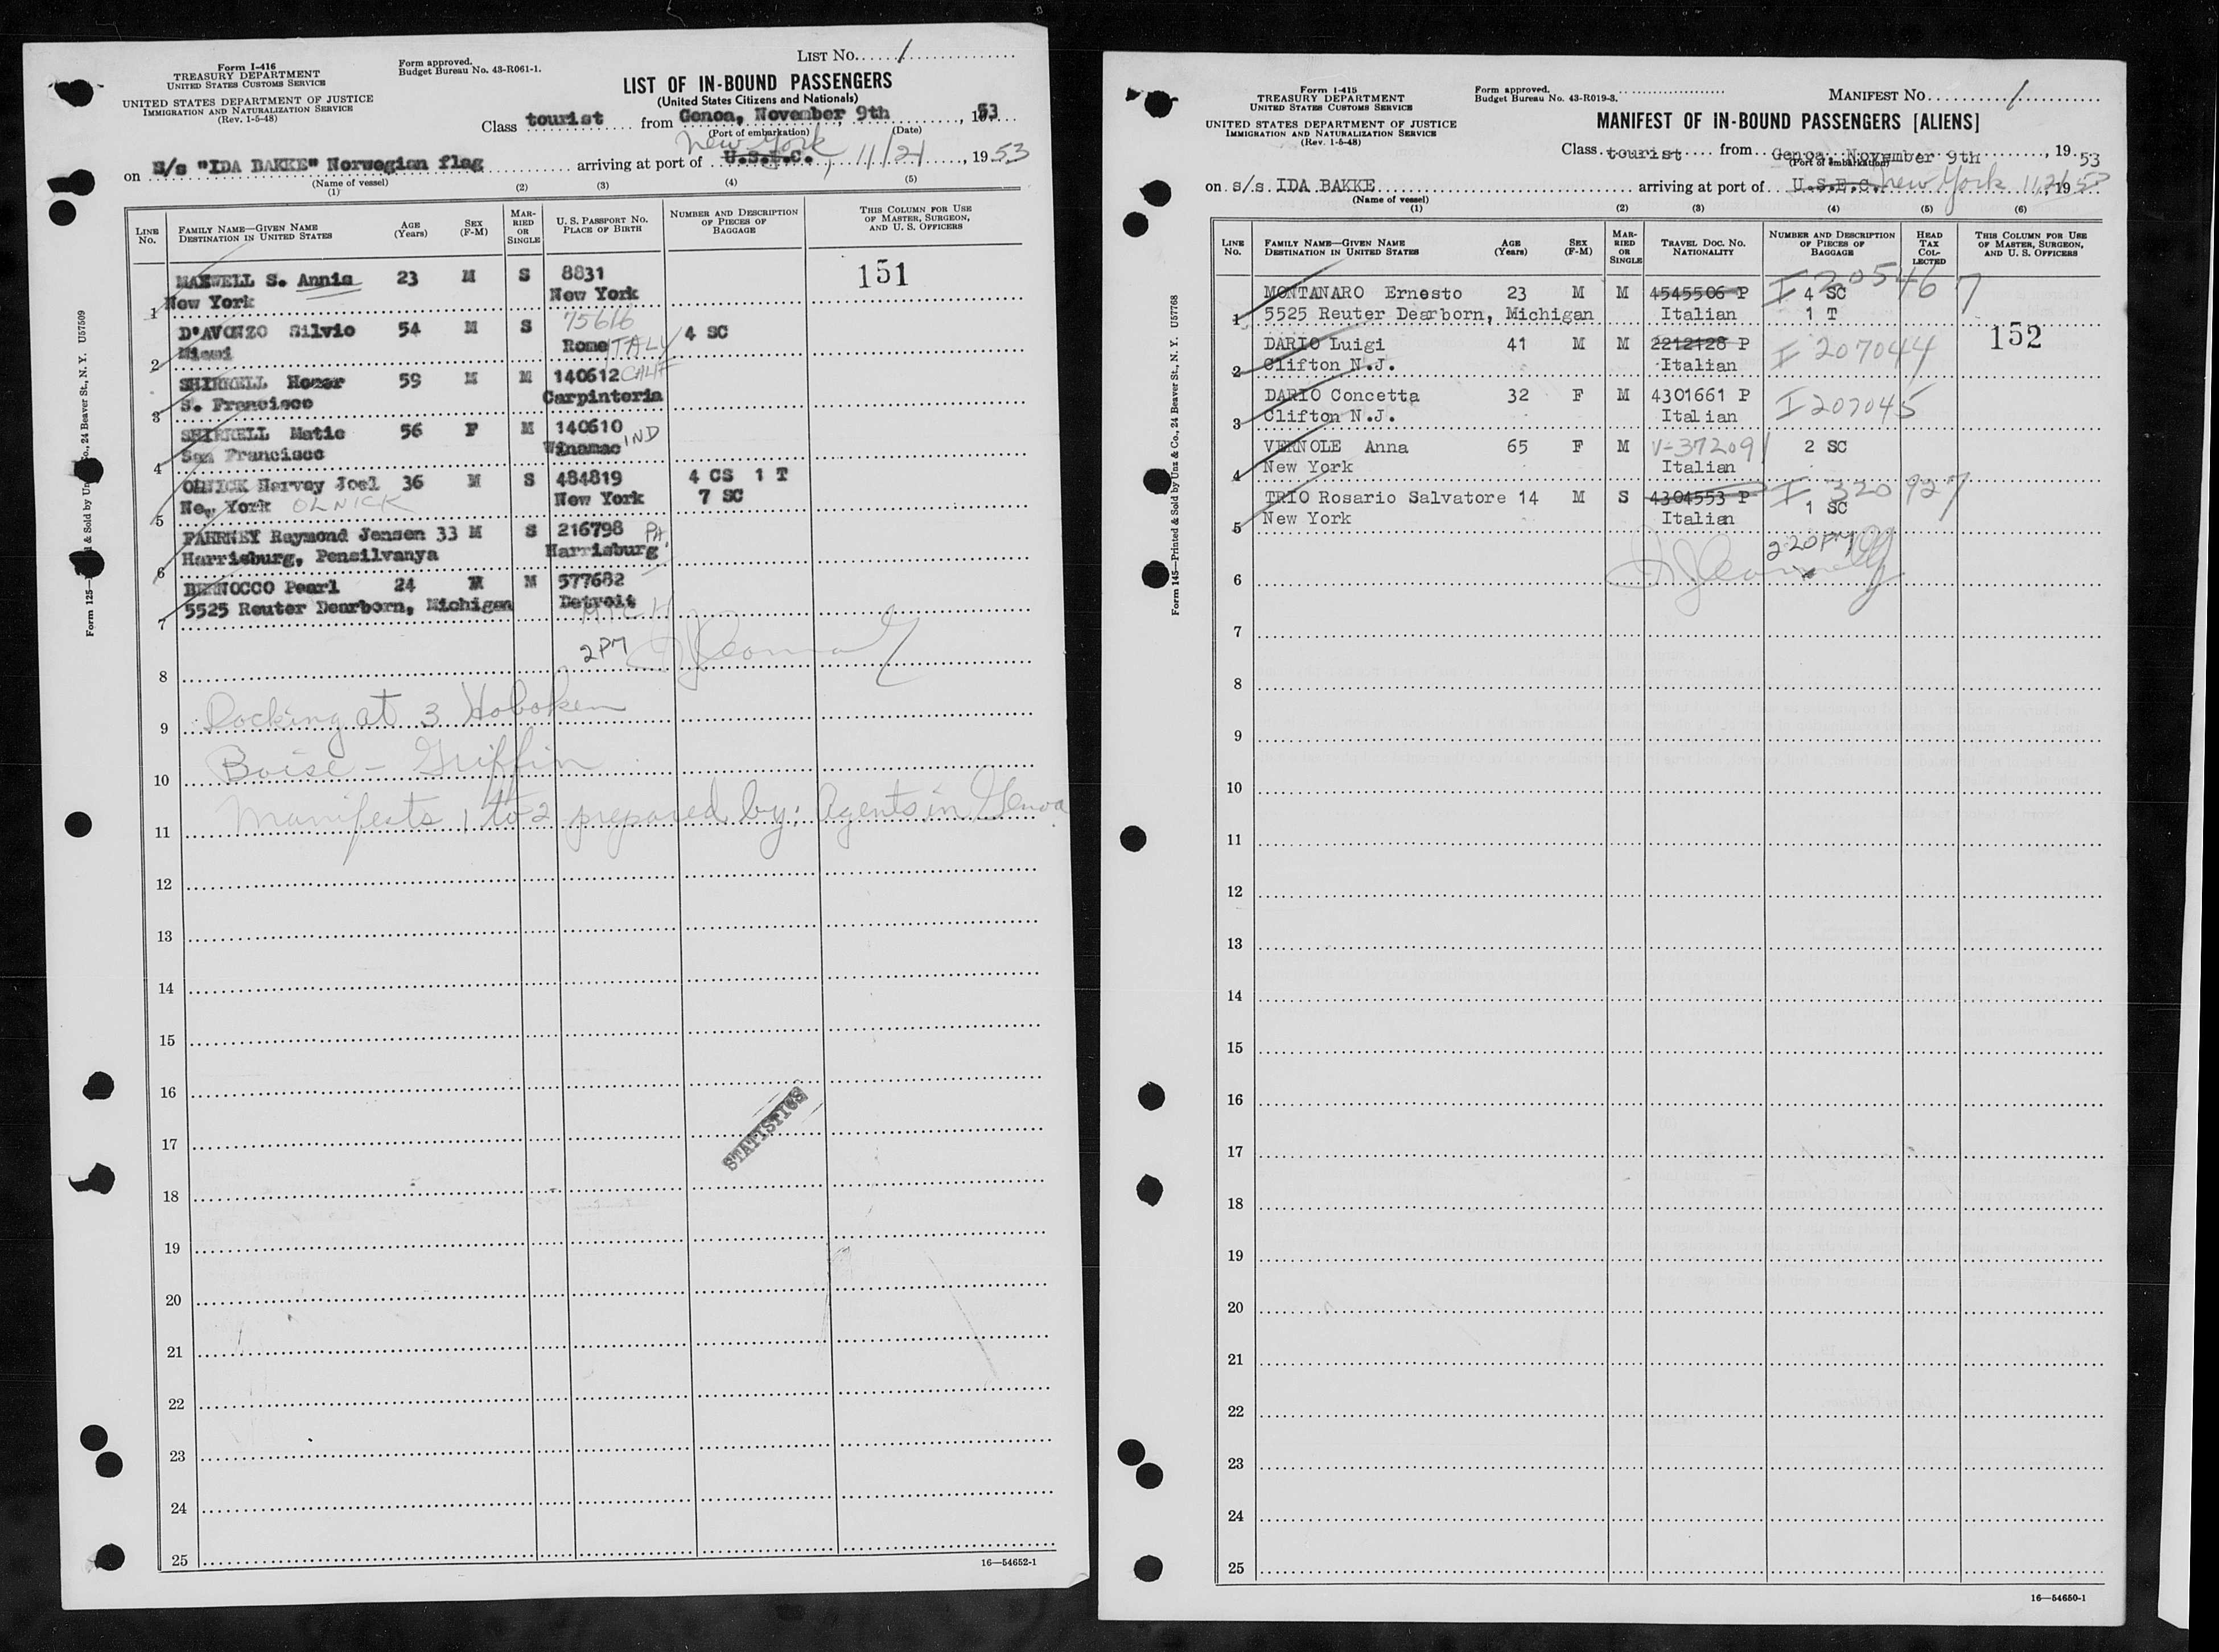 Form I-416
TREASURY DEPARTMENT
UNITED STATES CUSTOMS SERVICE
UNITED STATES DEPARTMENT OF JUSTICE
IMMIGRATION AND NATURALIZATION SERVICE
(Rev. 1-5-48)
Form approved.
Budget Bureau No. 43-R061-1.
LIST No. 1
LIST OF IN-BOUND PASSENGERS
(United States Citizens and Nationals)
Class tourist from Genoa, November 9th, 1953
(Port of embarkation) (Date)
on S/s "IDA BAKKE" Norwegian flag arriving at port of U.S.E.C. New York, 11/21, 1953
(Name of vessel)
(1) (2) (3) (4) (5)
LINE No. FAMILY NAME—GIVEN NAME DESTINATION IN UNITED STATES AGE (Years) SEX (F-M) MARRIED OR SINGLE U. S. PASSPORT NO. PLACE OF BIRTH NUMBER AND DESCRIPTION OF PIECES OF BAGGAGE THIS COLUMN FOR USE OF MASTER, SURGEON, AND U. S. OFFICERS
MAXWELL S. Annia 23 M S 8831 151
1 New York New York
D'AVONZO Silvio 54 M S 75616 4 SC
2 Miami Rome ITALY
SHIRRELL Homer 59 M M 140612 CALIF
3 S. Francisco Carpinteria
SHIRRELL Matie 56 F M 140610
4 San Francisco Winamac IND
OLNICK Harvey Joel 36 M S 484819 4 CS 1 T
5 New York OLNICK New York 7 SC
FAHRNEY Raymond Jensen 33 M S 216798 PA.
6 Harrisburg, Pensilvanya Harrisburg
BENNOCCO Pearl 24 M M 577682
7 5525 Reuter Dearborn, Michigan Detroit
MICH
2PM
8
9 Docking at 3 Hoboken
10 Boise - Griffin
11 Manifests 1 to 2 prepared by: Agents in Genoa
12
13
14
15
16
STATISTICS
17
18
19
20
21
22
23
24
25
16—54652-1
Form 125—
Co., 24 Beaver St., N. Y. U57509
Form I-415
TREASURY DEPARTMENT
UNITED STATES CUSTOMS SERVICE
UNITED STATES DEPARTMENT OF JUSTICE
IMMIGRATION AND NATURALIZATION SERVICE
(Rev. 1-5-48)
Form approved.
Budget Bureau No. 43-R019-3.
MANIFEST NO. 1
MANIFEST OF IN-BOUND PASSENGERS [ALIENS]
Class tourist from Genoa November 9th, 1953
(Port of embarkation)
on s/s IDA BAKKE arriving at port of U.S.E.C. New York 11/21, 1953
(Name of vessel)
(1) (2) (3) (4) (5) (6)
LINE No. FAMILY NAME—GIVEN NAME DESTINATION IN UNITED STATES AGE (Years) SEX (F-M) MARRIED OR SINGLE TRAVEL DOC. NO. NATIONALITY NUMBER AND DESCRIPTION OF PIECES OF BAGGAGE HEAD TAX COLLECTED THIS COLUMN FOR USE OF MASTER, SURGEON, AND U. S. OFFICERS
MONTANARO Ernesto 23 M M 4545506 P I 205467 4 SC
1 5525 Reuter Dearborn, Michigan Italian 1 T
DARIO Luigi 41 M M 2212128 P I 207044 152
2 Clifton N.J. Italian
DARIO Concetta 32 F M 4301661 P I 207045
3 Clifton N.J. Italian
VERNOLE Anna 65 F M V-372091 2 SC
4 New York Italian
TRIO Rosario Salvatore 14 M S 4304553 P I 320927 1 SC
5 New York Italian
220PM
6
7
8
9
10
11
12
13
14
15
16
17
18
19
20
21
22
23
24
25
16—54650-1
Form 145—Printed & Sold by Unz & Co., 24 Beaver St., N. Y. U57768